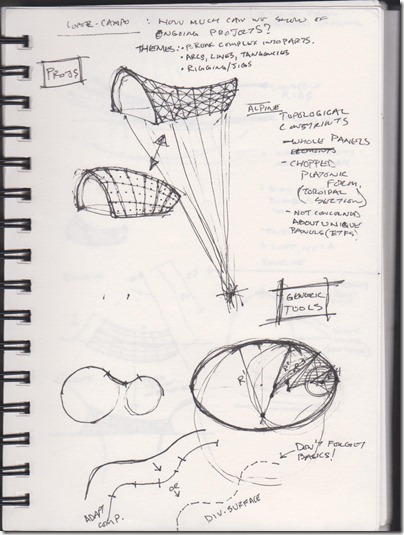 SUPER-CAMPO : HOW MUCH CAN WE SHOW OF
ONGOING PROJECTS?
THEMES: • BREAK COMPLEX INTO PARTS.
• ARCS, LINES, TANGENCIES
• RIGGING/JIGS
PROJS
ALPINE
TOPOLOGICAL
CONSTRAINTS
- WHOLE PANELS
- CHOPPED
PLATONIC
FORM
(TOROIDAL
SECTION)
- NOT CONCERNED
ABOUT UNIQUE
PANELS (ETFE)
GENERIC
TOOLS
DON'T FORGET
BASICS!
ADAPT
COMP.
OR
DIV. SURFACE